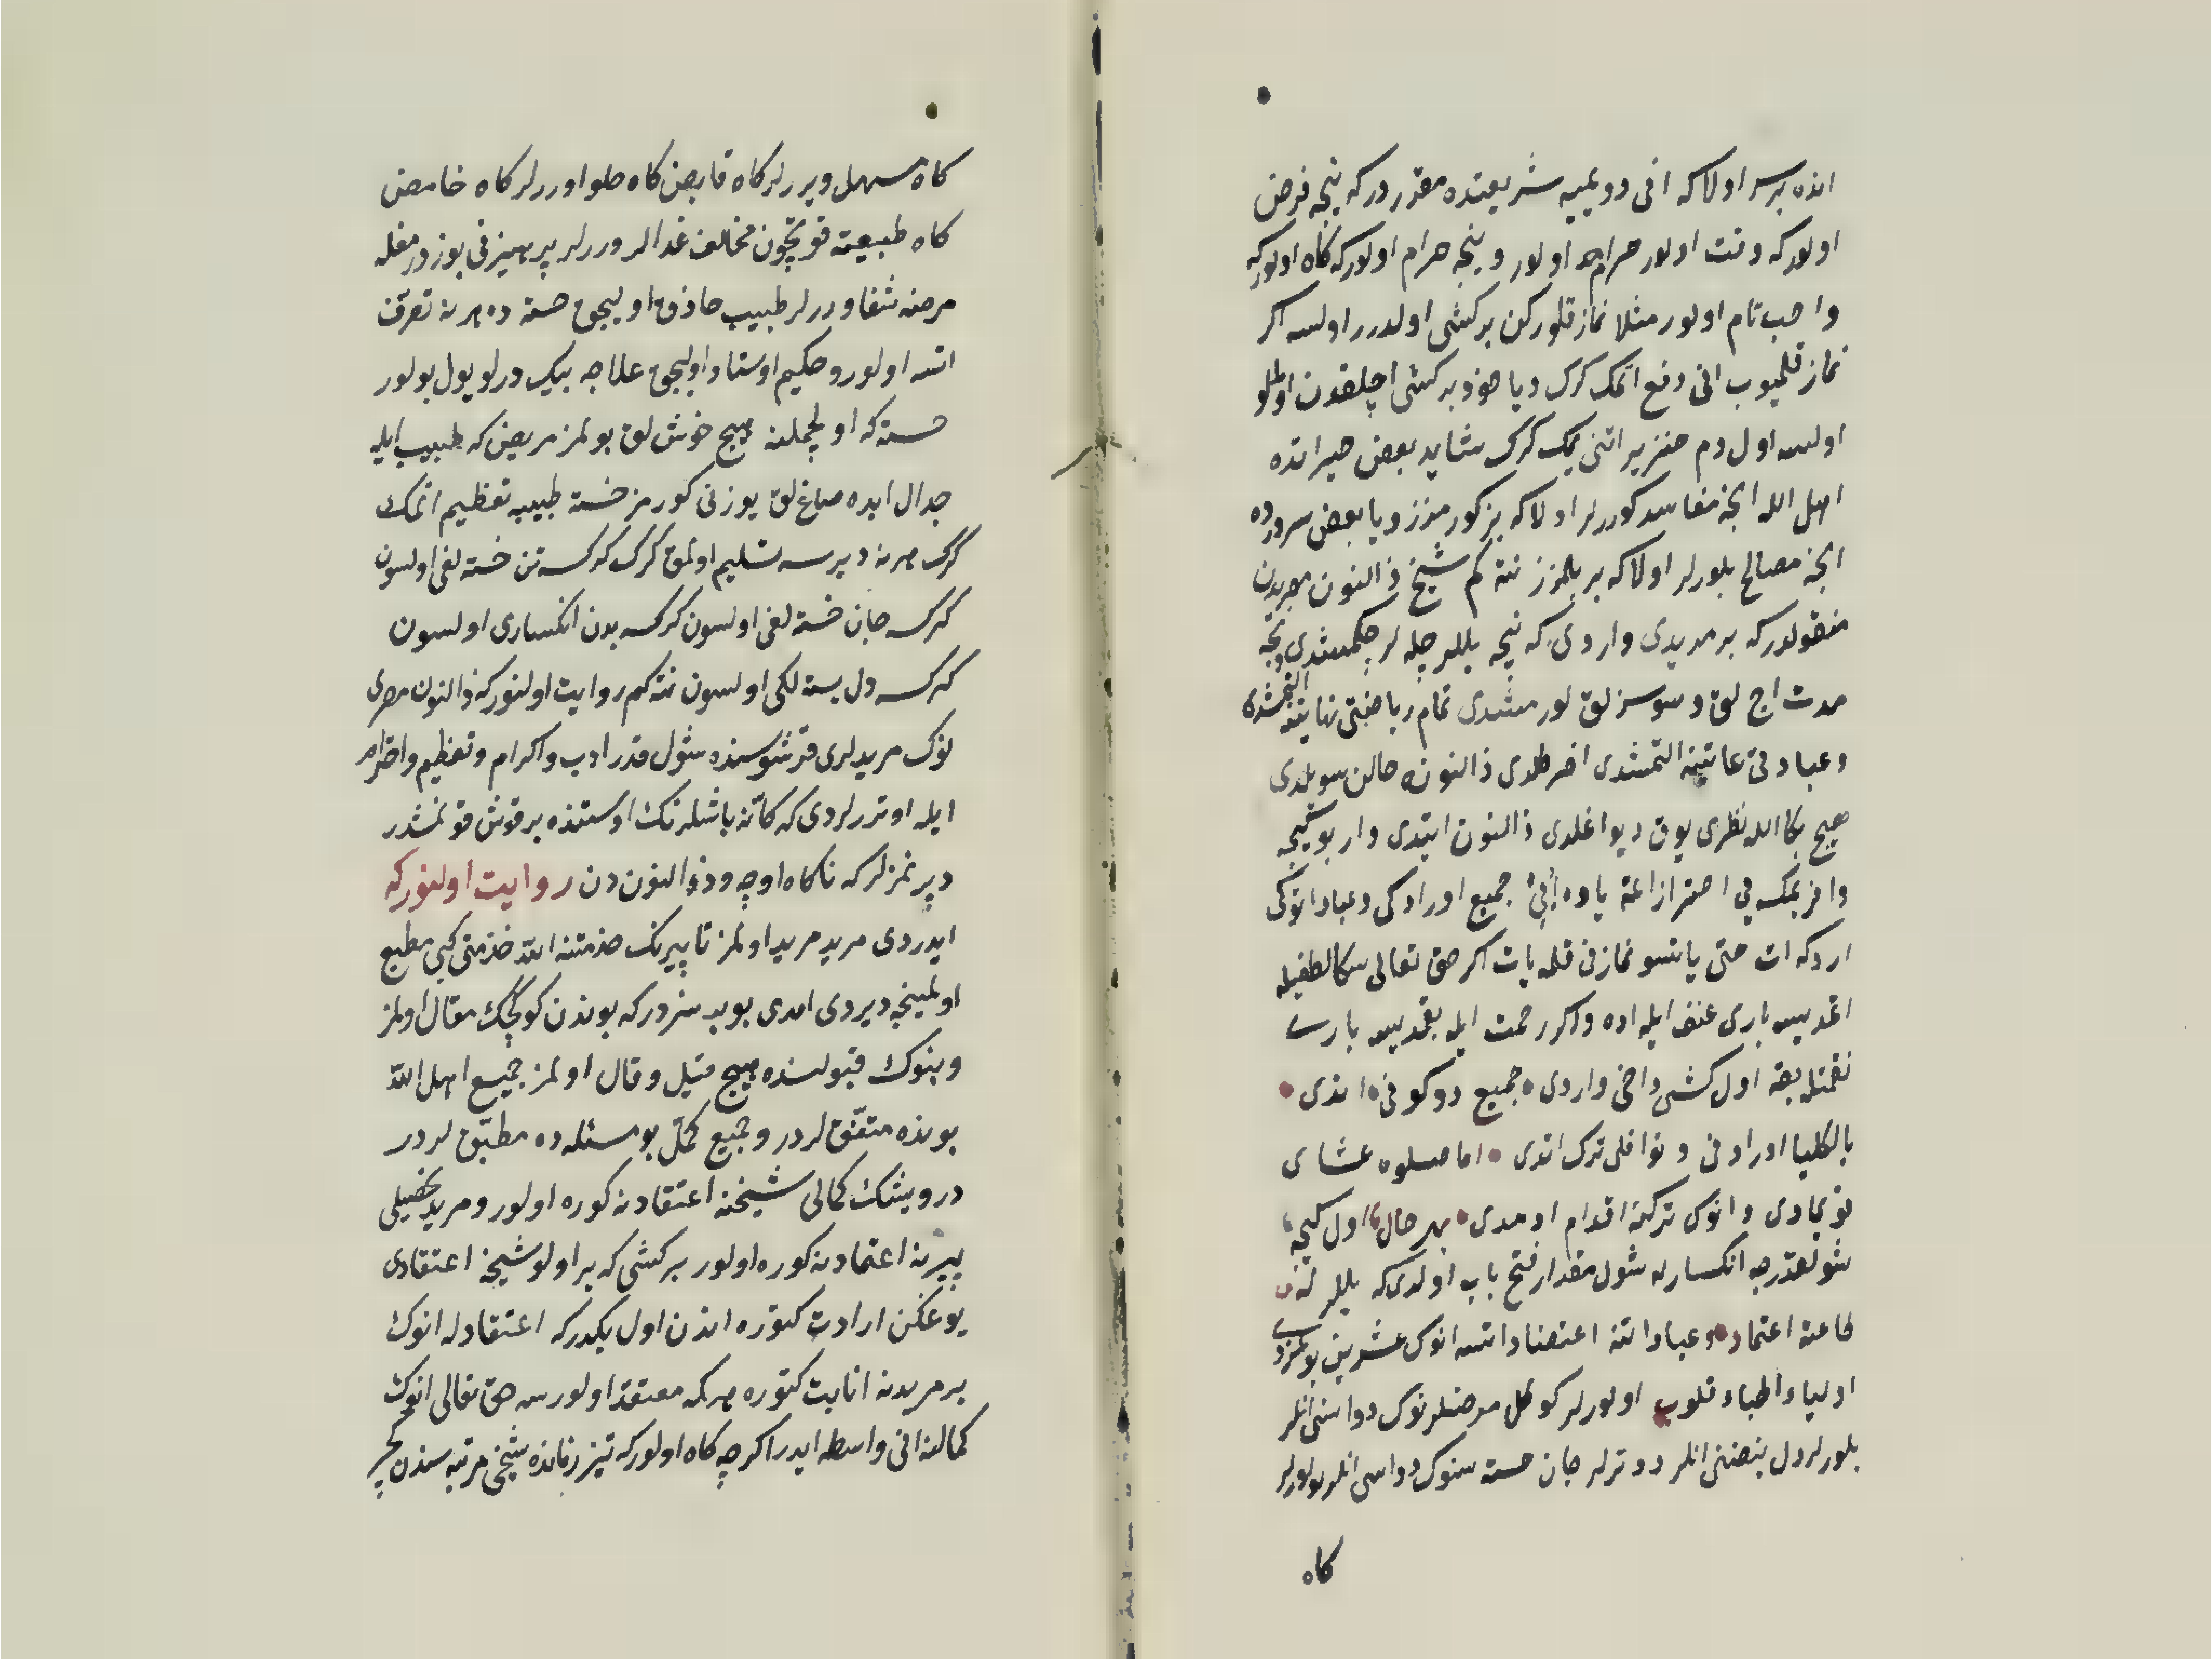 انده بر سر اولا که انی دویمیه شریعتده مقرردر که نیجه فرض
اولور که وقت اولور حرام اولور و نیجه حرام اولور که کاه اولور که
واجب تام اولور مثلا نماز قلورکن بر کشی اولدرر اولسه اکر
نماز قلمیوب انی دفع اتمک کرک و یا خود بر کشی اچلقدن اولملو
اولسه اول دم خنزیر اتنی یمک کرک شاید بعض خیراتده
اهل الله انجه مفاسد کوررلر اولا که بز کورمزز و یا بعض سردرده
انجه مصالح بلورلر اولا که بز بلمزز نته کم شیخ ذالنون
منقولدر که بر مریدی واردی که نیجه یللر چله لر چکمشدی نیجه
مدت اج لق و سوسزلق کورمشدی تمام ریاضتی نهایتنه التمشدی
و عبادتی غایتنه التمشدی اخر کلدی ذالنونه حالن سویلدی
هیچ بکا الله نظری یوق دیو اغلدی ذالنون ایتدی وار بو کیجه
وافر یمک یی احترازانمه یاوه جمیع اورادکی و عباداتوکی
اردکه ات حتی یاتسو نمازن قلمه یات اکر حق تعالی سکا لطفیله
اتمدیسه باری عنف ایله اده و اکر رحمت ایله بقمدیسه باری
نقمتله بقه اول کشی داخی واردی جمیع دوکونی اندی
بالکلیا اورادنی و نوافلی ترک اتدی اما صلوه عشای
قویمادی و انوک ترکنه اقدام اومدی بهر حال اول کیجه
شولقدرجه انکسارله شول مقدار فتح باب اولدی که یللر له
طاعته اعتماد و عباداتنه اعتضاد اتسه انوک عشرین بولمزدی
اولیا اطباء قلوب اولورلر کوکل مرضلرنوک دواسنی انلر
بلورلر دل نبضنی انلر دوترلر جان خسته سنوک دواسی انلر بولورلر
کاه
کاه مسهل ویررلر کاه قابض کاه حلوا وررلر کاه حامض
کاه طبیعته قوتچون مخالف غدالر وررلر پرهیزنی بوزدرمغله
مرضنه شفا وررلر طبیب حاذق اولیجق خسته ده هر نه تصرف
اتسه اولور و حکیم اوستاد اولیجق علاجه بیک درلو یول بولور
خسته که اولجمله هیچ خوش لق بولمز مریض که طبیب ایله
جدال ایده صاغ لق یوزنی کورمز خسته طبیبه تعظیم اتمک
کرک هر نه دیرسه تسلیم اولمق کرک کرکسه تن خسته لغی اولسون
کرکسه جان خسته لغی اولسون کرکسه بدن انکساری اولسون
کرکسه دل بسته لکی اولسون نته کم روایت اولنور که ذالنون مصری
نوک مریدلری قرشوسنده شول قدر ادب و اکرام و تعظیم و احترام
ایله اوتررلردی که کانه باشلرنک اوستنده بر قوش قونمشدر
دپرنمزلر که ناکاه اوچه و ذوالنون دن روایت اولنور که
ایدردی مرید مرید اولمز تا پیرنک خدمتنه الله خدمتی کبی مطیع
اولمینجه دیردی امدی بو بر سزدر که بوندن کوکچک مقال اولمز
و بنوک قبولنده هیچ قیل و قال اولمز جمیع اهل الله
بونده متفق لردر و جمیع کمل بو مسئله ده مطبق لردر
درویشک کمالی شیخنه اعتقادنه کوره اولور و مرید تحصیلی
پیرنه اعتمادنه کوره اولور بر کشی که بر اولو شیخه اعتقادی
یوغکن ارادت کتوره اندن اول یکدر که اعتقادله انوک
بر مریدنه انابت کتوره هر که معتقد اولورسه حق تعالی انوک
کمالنه انی واسطه ایدر اکرچه کاه اولور که تیز زمانده شیخی مرتبه سندن کچر